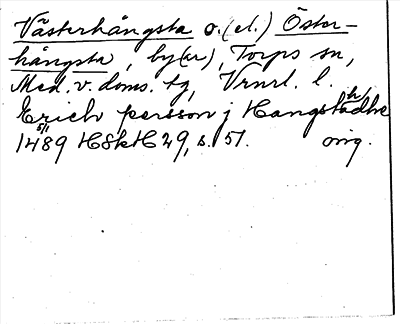 Västerhångsta o. (el.) Öster-
hångsta, by(ar), Torps sn,
Med. v. doms. tg, Vrnrl. l.
Erich persson j Hangstadhe
5/1
1489 HSkH 29, s. 51. orig.